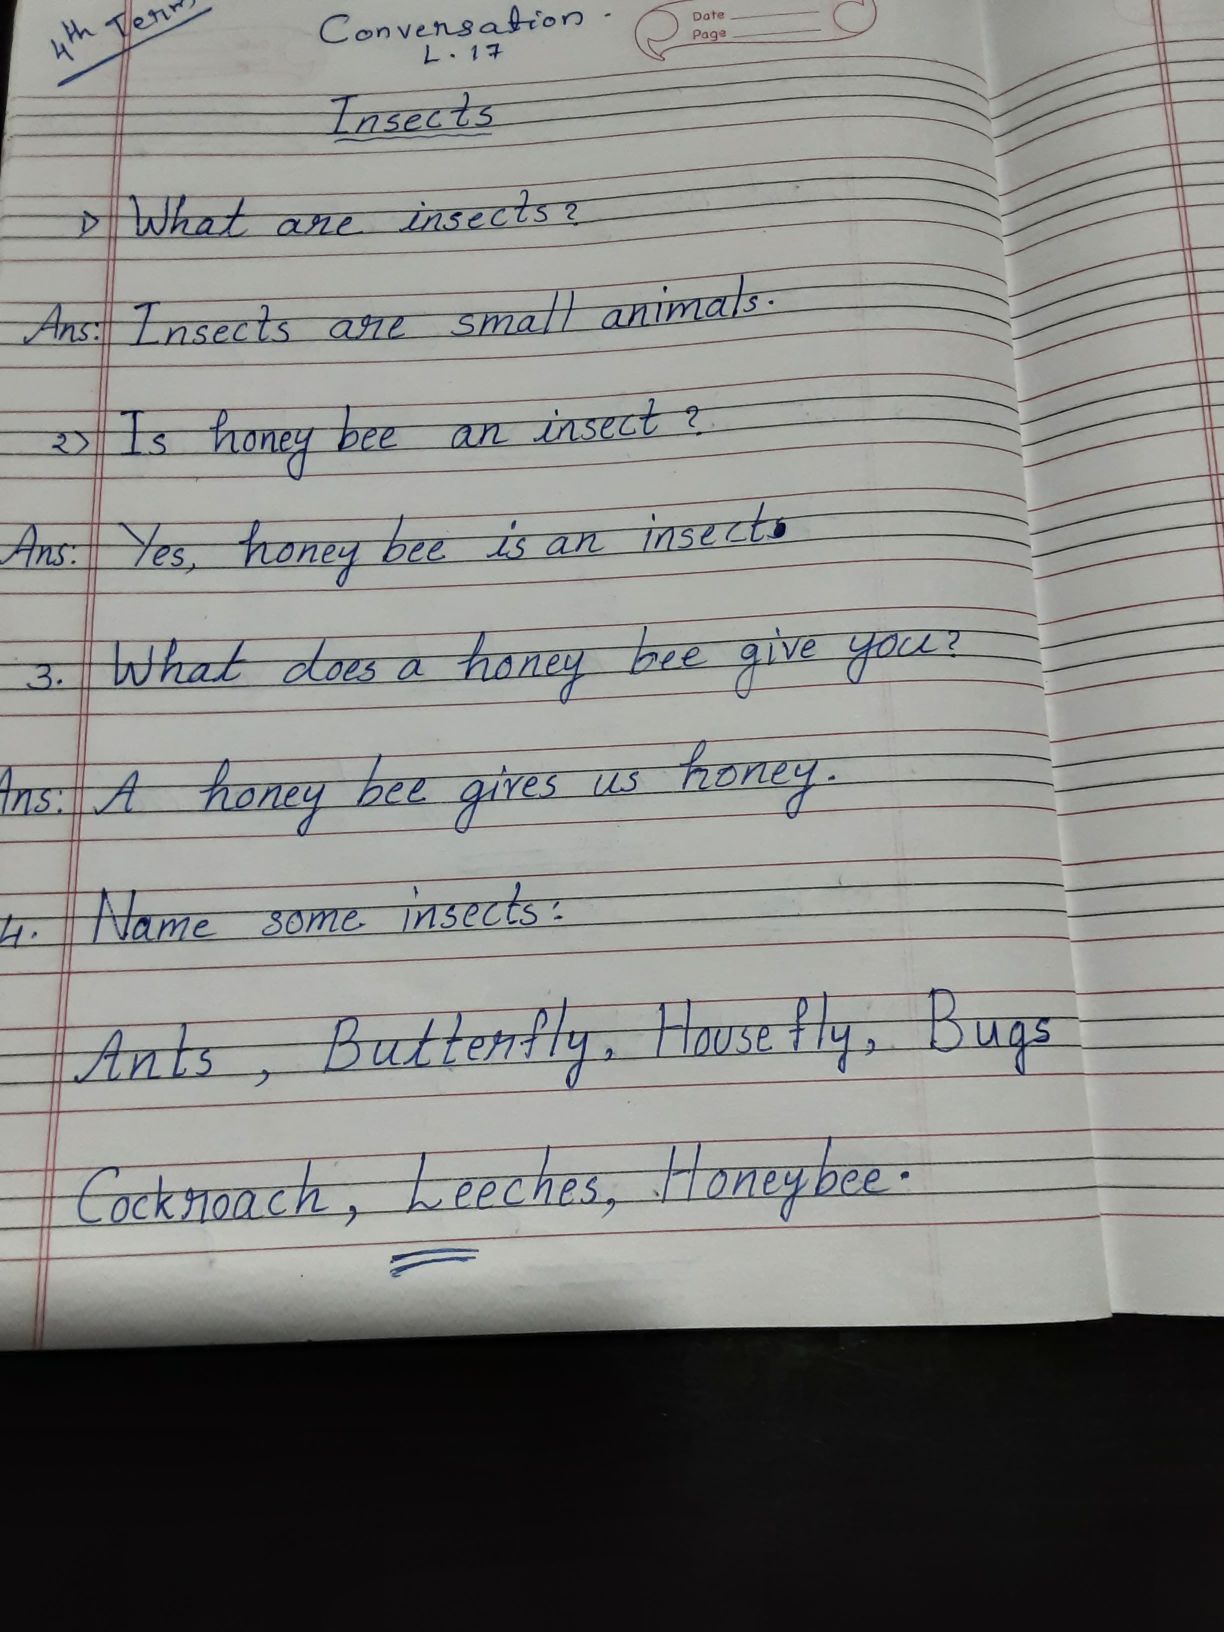 4th Term
Conversation.
Date
Page
L. 17
Insects
1) What are insects?
Ans: Insects are small animals.
2) Is honey bee an insect?
Ans: Yes, honey bee is an insect.
3. What does a honey bee give you?
Ans: A honey bee gives us honey.
4. Name some insects:
Ants, Butterfly, House fly, Bugs
Cockroach, Leeches, Honeybee.